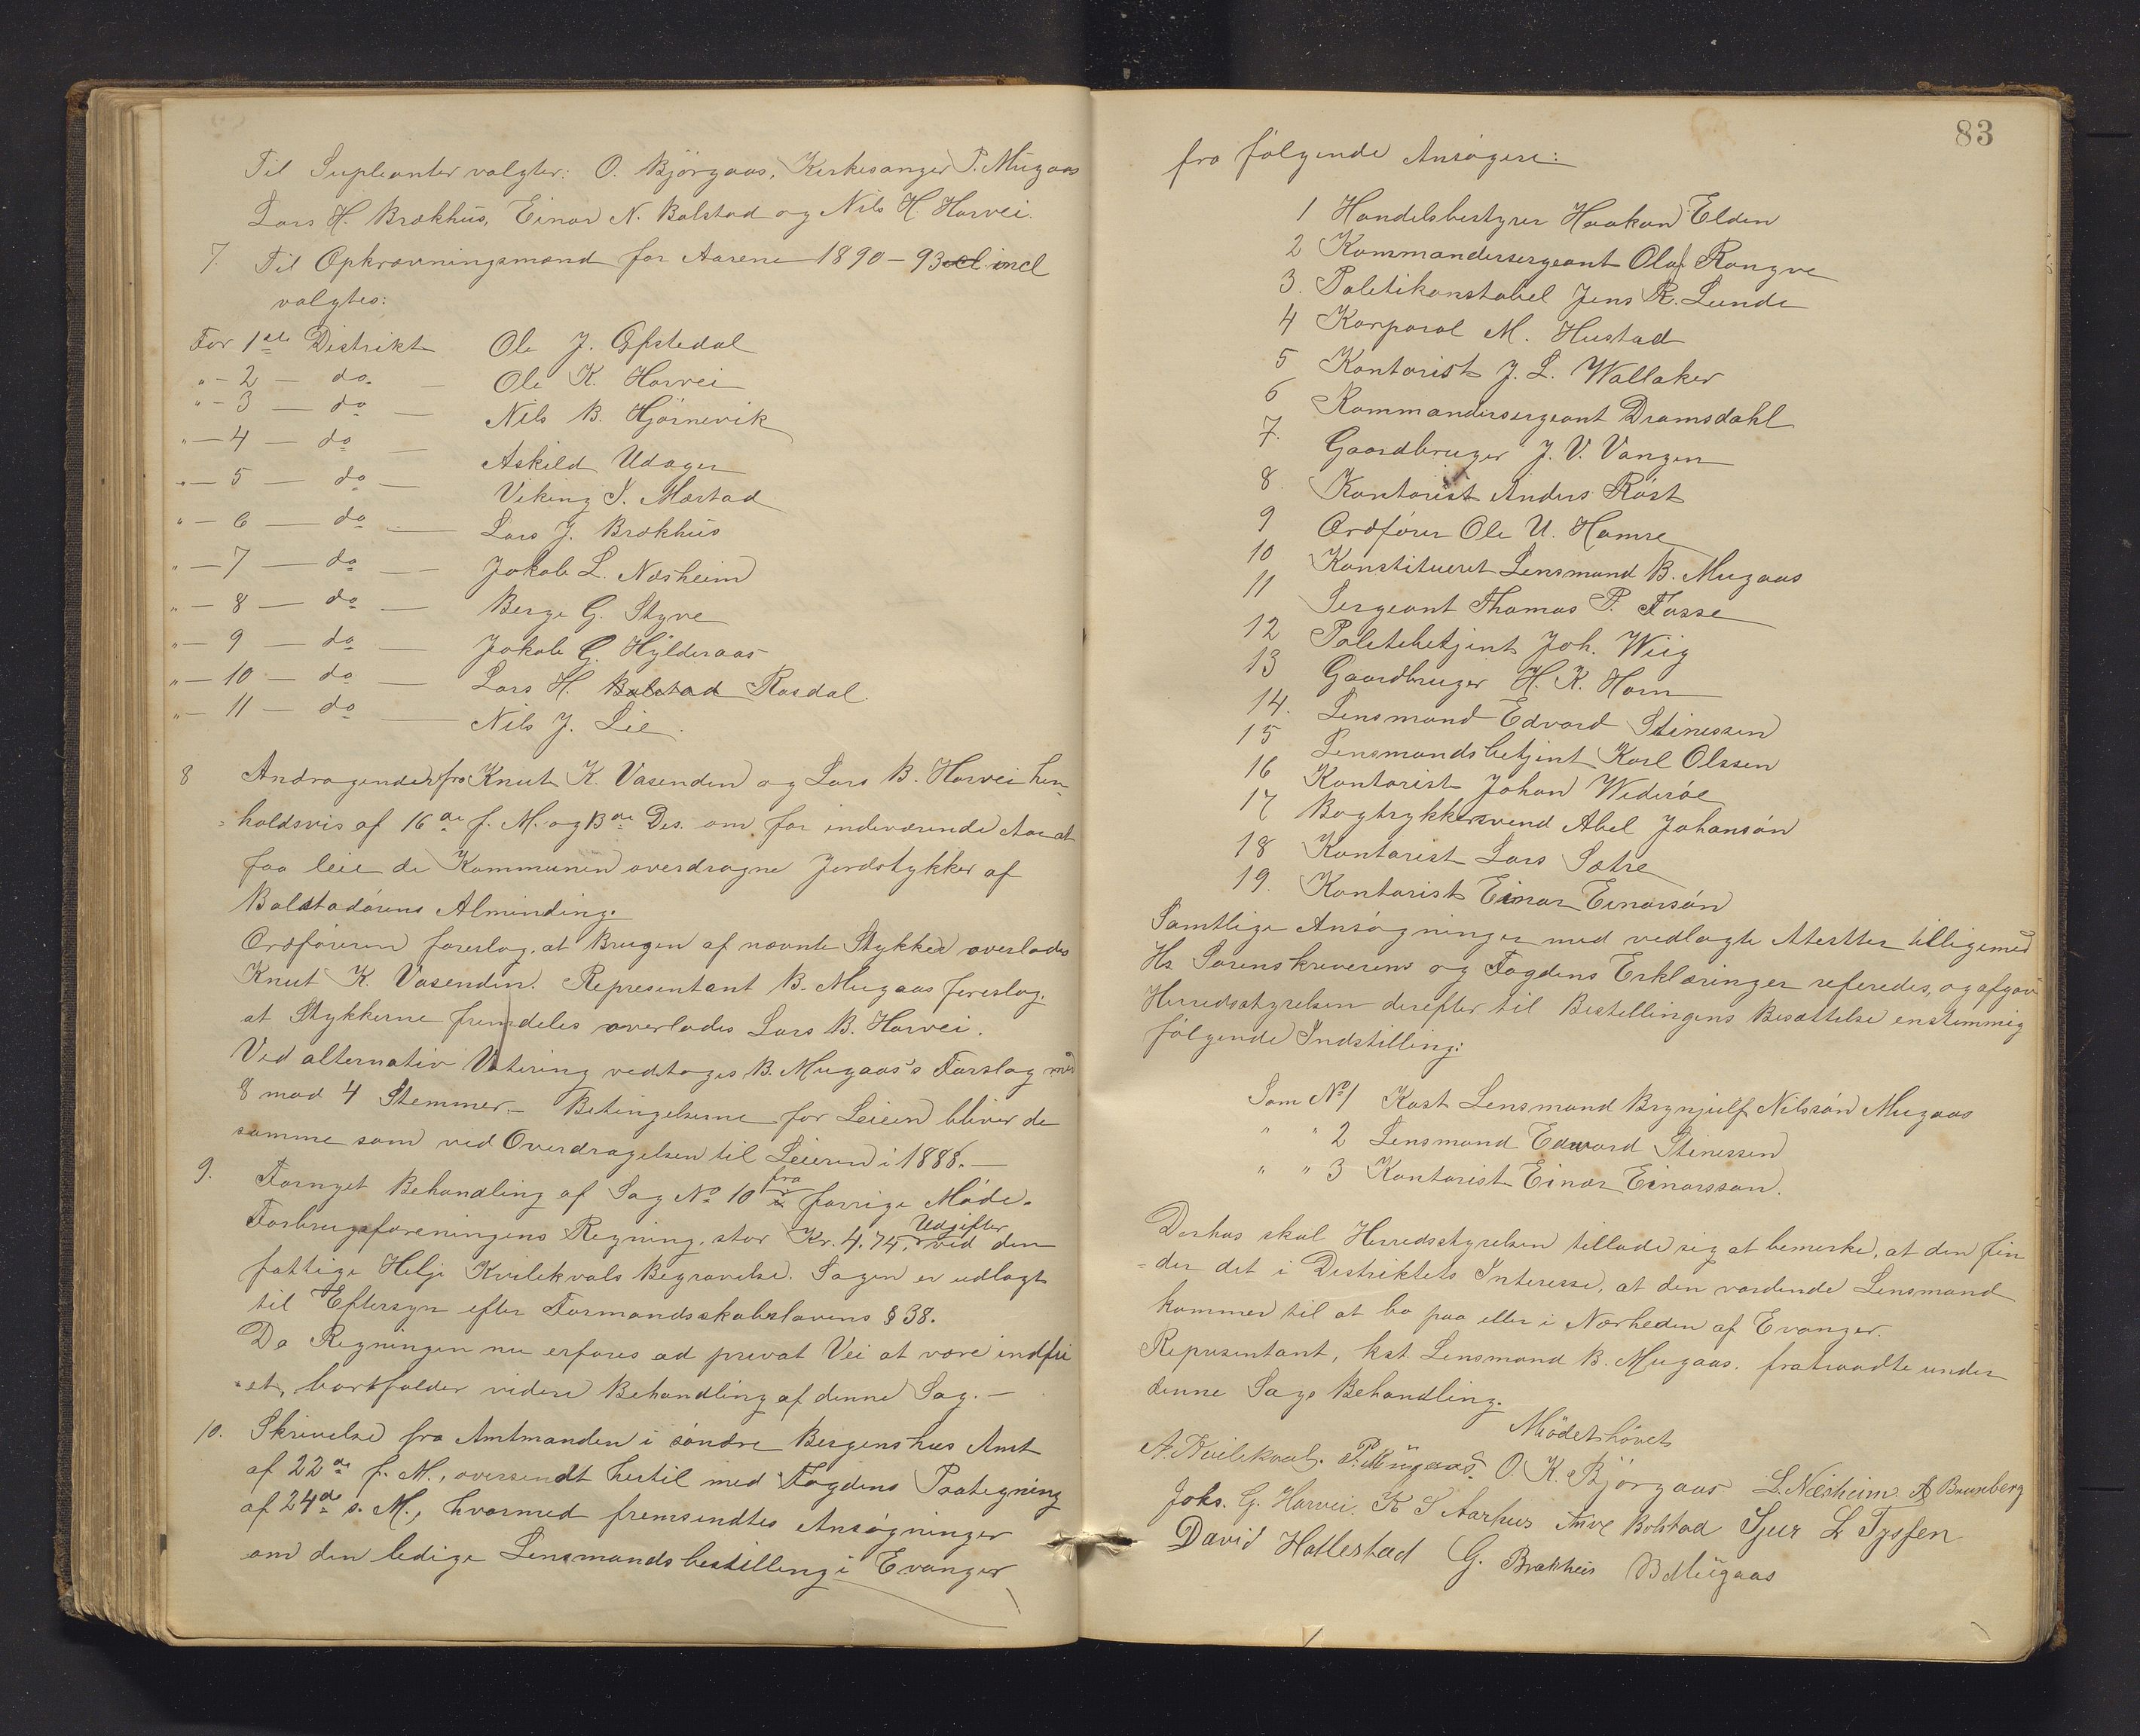 Til Supleanter valgtes: O. Björgaas, Kirkesanger P. Mügaas
Lars H. Brækhüs, Einar N. Bolstad og Nils H. Horvei.
7. Til Opkrævningsmænd for Aarene 1890-93 incl
valgtes:
For 1ste Distrikt Ole J. Gjstedal
" - 2 - do - Ole K. Horvei
" - 3 - do - Nils B. Hjörnevik
" - 4 - do - Askild Udager
" - 5 - do - Viking I. Mæstad
" - 6 - do - Lars J. Brækhüs
" - 7 - do - Jakob L. Næsheim
" - 8 - do - Berge G. Styve
" - 9 - do - Jakob G. Hylderaas
" - 10 - do - Lars H. Bolstad Rasdal.
" - 11 - do - Nils J. Lie.
8 Andragender fra Knut K. Vasenden og Lars B. Horvei hen-
= holdsvis af 16de f. M. og 13de Ds. om for indeværende Aar at
faa leie de Kommunen overdragne Jordstykker af
Bolstadörens Alminding.
Ordföreren foreslog, at Brugen af nævnte Stykker overlades
Knut K. Vasenden. Representant B. Mugaas foreslog,
at Stykkerne fremdeles overlades Lars B. Horvei.
Ved alternativ Votering vedtoges B. Mugaas's Forslag med
8 mod 4 Stemmer. - Betingelserne for Leien bliver de
samme som ved Overdragelsen til Leieren i 1888. -
9. Fornyet Behandling af Sag No 10 fra forrige Möde.
Forbrugsforeningens Regning, stor Kr. 4,74, Udgifter ved den
fattige Helje Kvilekvals Begravelse. Sagen er udlagt
til Eftersyn efter Formandsskabslovens § 38.
Da Regningen nu erfares ad privat Vei at være indfri
= et, bortfalder videre Behandling af denne Sag. -
10. Skrivelse fra Amtmanden i söndre Bergenshus Amt
af 22de f. M., oversendt hertil med Fogdens Paategning
af 24de s. M., hvormed fremsendtes Ansögninger
om den ledige Lensmandsbestilling i Evanger
83
fra fölgende Ansögere:
1 Handelsbestyrer Haakon Elden
2 Kommandersergeant Olaf Rongve
3. Politikonstabel Jens R. Lunde
4 Korporal M. Hustad
5 Kontorist J. L. Wallaker
6 Kommandersergeant Dramsdahl
7. Gaardbruger J. V. Vangen
8. Kontorist Anders Röst
9 Ordförer Ole U. Hamre
10 Konstitueret Lensmand B. Mugaas
11 Sergeant Thomas P. Fosse
12 Politibetjent Joh. Wiig
13 Gaardbruger H. K. Horn
14. Lensmand Edvard Stinessen
15 Lensmandsbetjent Karl Olssen
16 Kontorist Johan Wideröe
17 Bogtrykkersvend Abel Johansön
18 Kontorist Lars Sætre
19. Kontorist Einar Einarsön
Samtlige Ansögninger med vedlagte Atester tilligemed
Hr Sorenskriverens og Fogdens Erklæringer referedes, og afgav
Herredsstyrelsen derefter til Bestillingens Besættelse enstemmig
fölgende Indstilling:
Som No 1 Kst Lensmand Brynjulf Nilssön Mugaas
" " 2 Lensmand Edward Stinessen
" " 3 Kontorist Einar Einarsson.
Derhos skal Herredsstyrelsen tillade sig at bemerke, at den fin
= der det i Distriktets Interesse, at den vordende Lensmand
kommer til at bo paa eller i Nærheden af Evanger.
Representant, kst. Lensmand B. Mugaas. fratraadte under
denne Sags Behandling.
Mödet hævet
A. Kvilekval. P. Mügaas. O. K. Björgaas L. Næsheim. Brunborg
Johs. G. Horvei. K S Aarhus Bolstad Sjur L Tyssen
David Hallestad G. Brækhüs B Mügaas